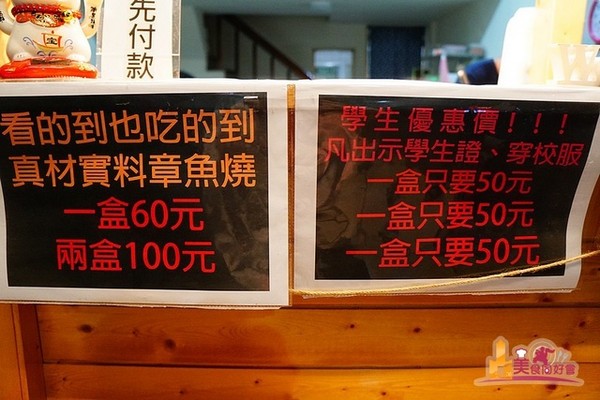 先付款
看的到也吃的到
真材實料章魚燒
一盒60元
兩盒100元
學生優惠價!!!
凡出示學生證、穿校服
一盒只要50元
一盒只要50元
一盒只要50元
美食同好會